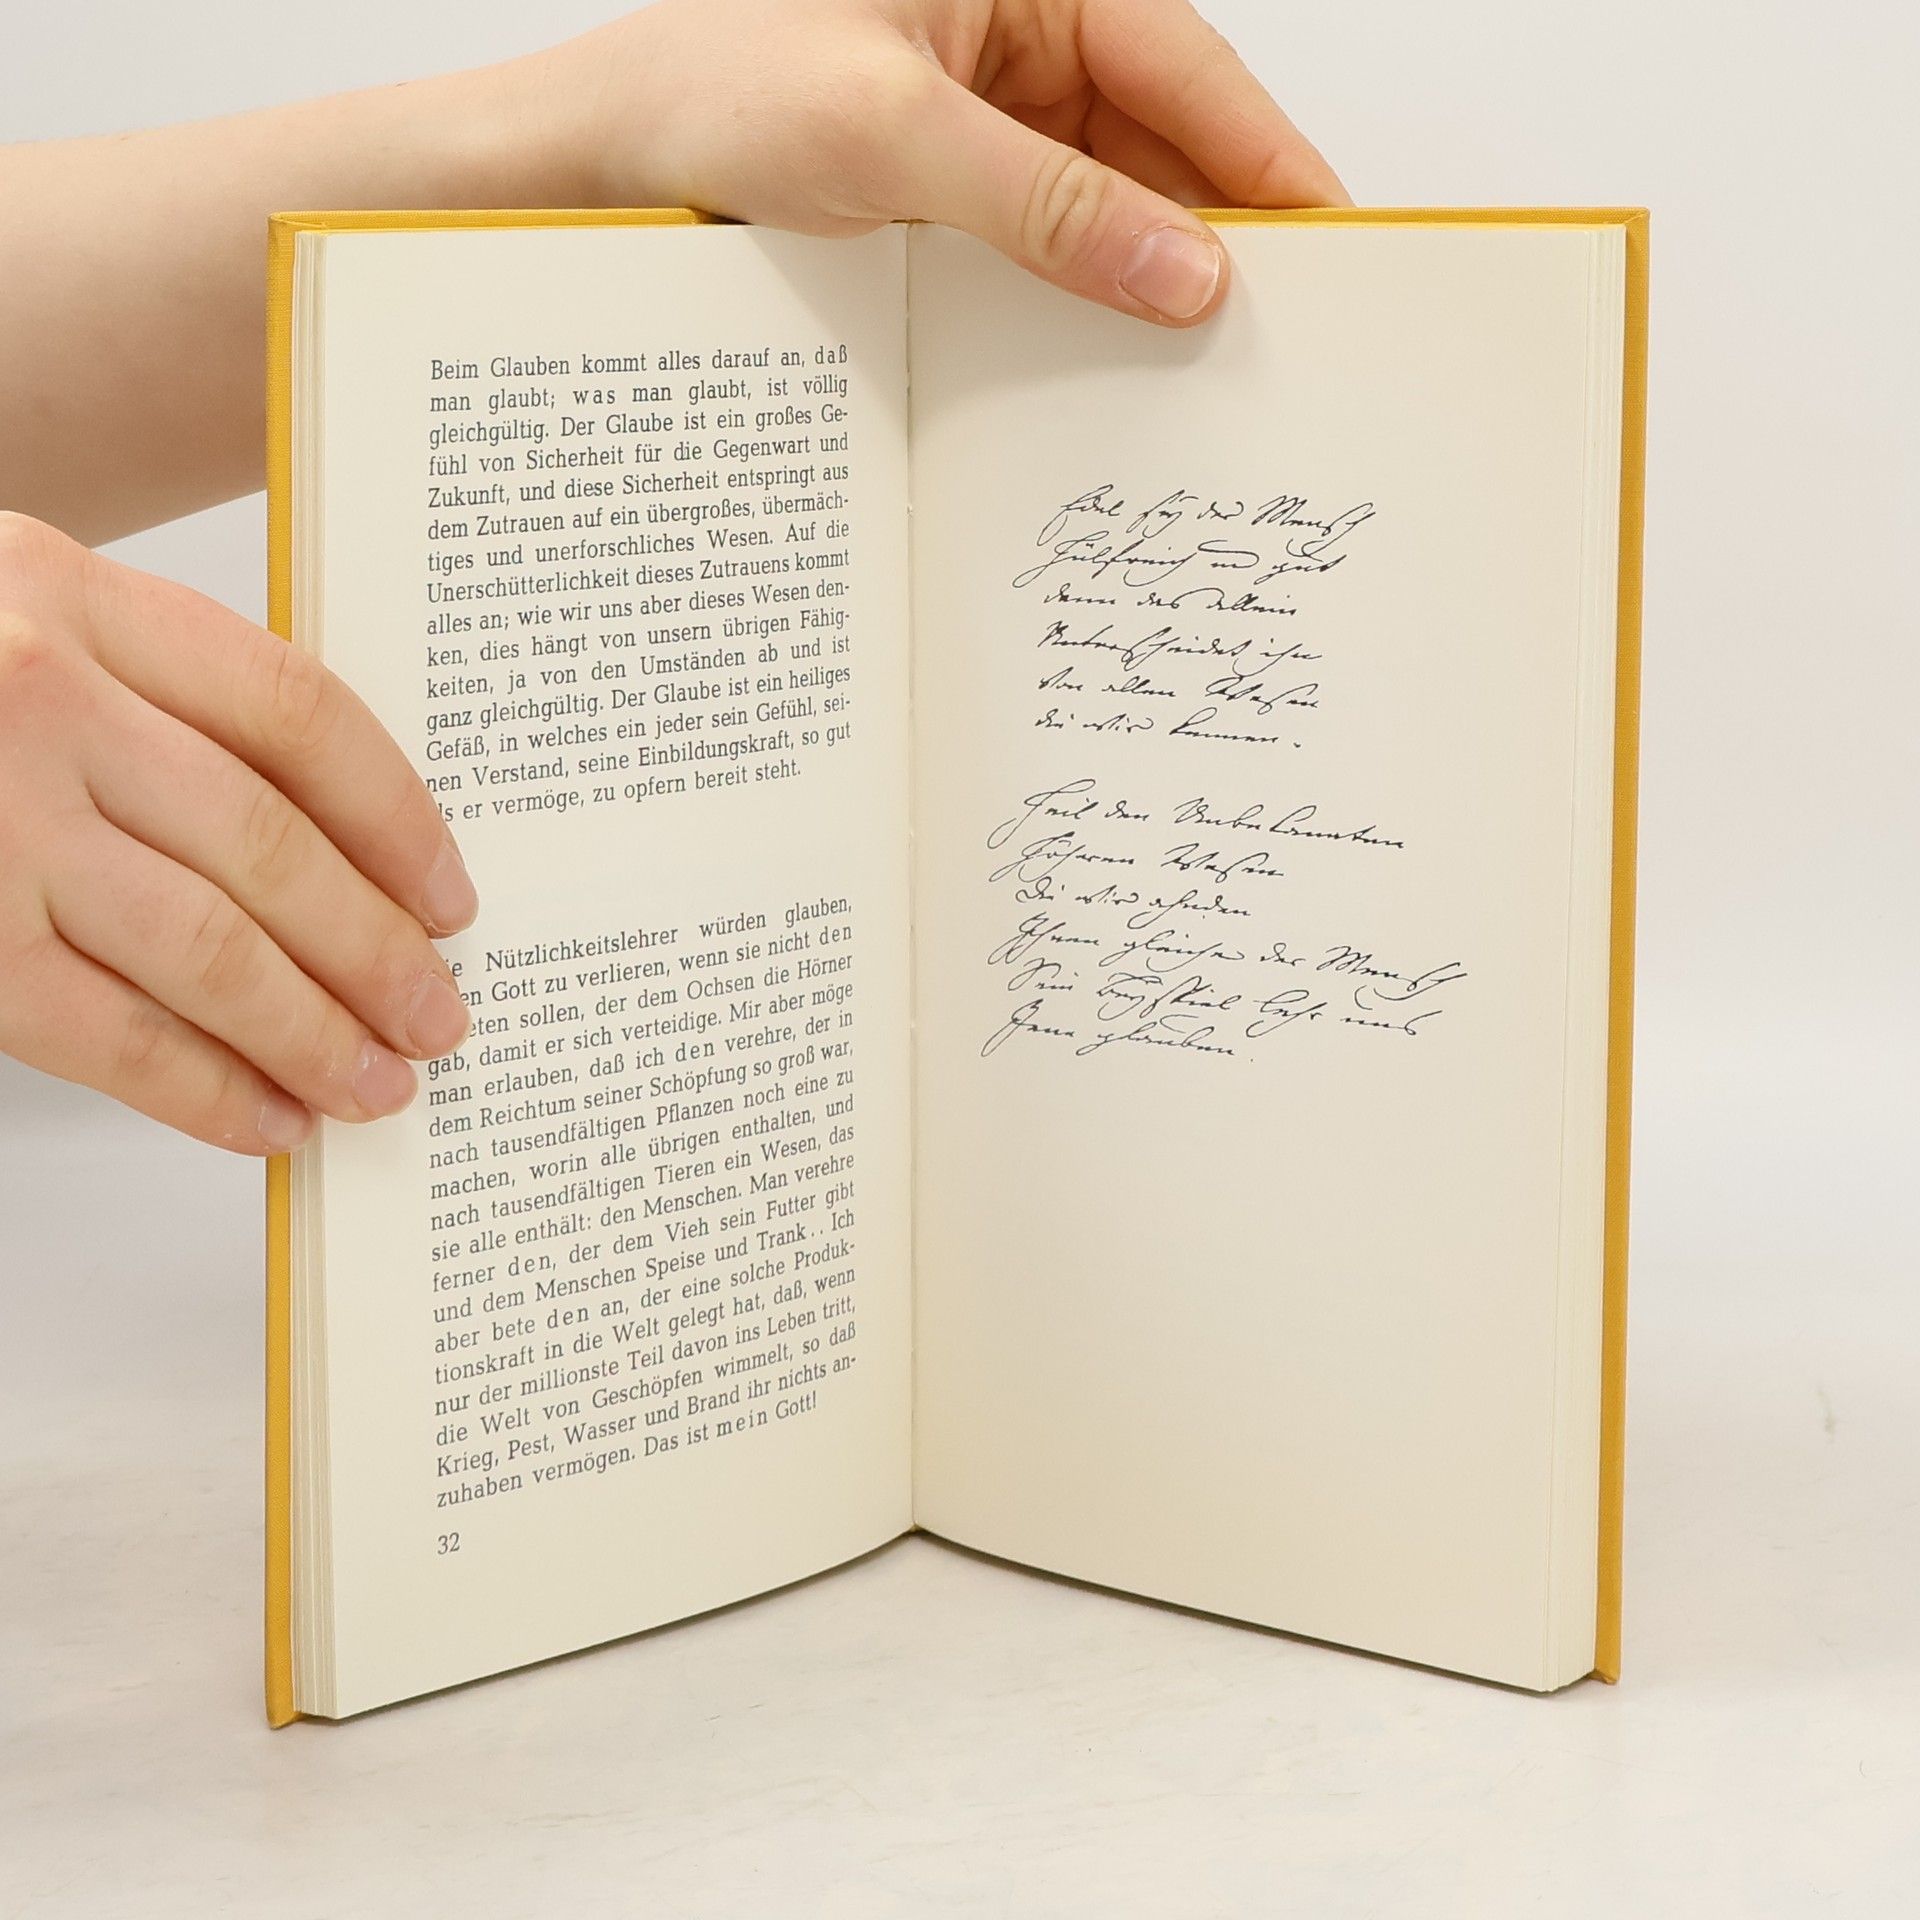 Beim Glauben kommt alles darauf an, daß
man glaubt; was man glaubt, ist völlig
gleichgültig. Der Glaube ist ein großes Ge-
fühl von Sicherheit für die Gegenwart und
Zukunft, und diese Sicherheit entspringt aus
dem Zutrauen auf ein übergroßes, übermäch-
tiges und unerforschliches Wesen. Auf die
Unerschütterlichkeit dieses Zutrauens kommt
alles an; wie wir uns aber dieses Wesen den-
ken, dies hängt von unsern übrigen Fähig-
keiten, ja von den Umständen ab und ist
ganz gleichgültig. Der Glaube ist ein heiliges
Gefäß, in welches ein jeder sein Gefühl, sei-
nen Verstand, seine Einbildungskraft, so gut
ls er vermöge, zu opfern bereit steht.
ie Nützlichkeitslehrer würden glauben,
en Gott zu verlieren, wenn sie nicht den
eten sollen, der dem Ochsen die Hörner
gab, damit er sich verteidige. Mir aber möge
man erlauben, daß ich den verehre, der in
dem Reichtum seiner Schöpfung so groß war,
nach tausendfältigen Pflanzen noch eine zu
machen, worin alle übrigen enthalten, und
nach tausendfältigen Tieren ein Wesen, das
sie alle enthält: den Menschen. Man verehre
ferner den, der dem Vieh sein Futter gibt
und dem Menschen Speise und Trank.. Ich
aber bete den an, der eine solche Produk-
tionskraft in die Welt gelegt hat, daß, wenn
nur der millionste Teil davon ins Leben tritt,
die Welt von Geschöpfen wimmelt, so daß
Krieg, Pest, Wasser und Brand ihr nichts an-
zuhaben vermögen. Das ist mein Gott!
32
Edel sey der Mensch
Hülfreich un gut
denn das allein
Unterscheidet ihn
von allen Wesen
die wir kennen.
Heil den Unbekannten
Höheren Wesen
Die wir ahnden
Ihnen gleiche der Mensch
Sein Beyspiel lehr uns
Jene glauben.